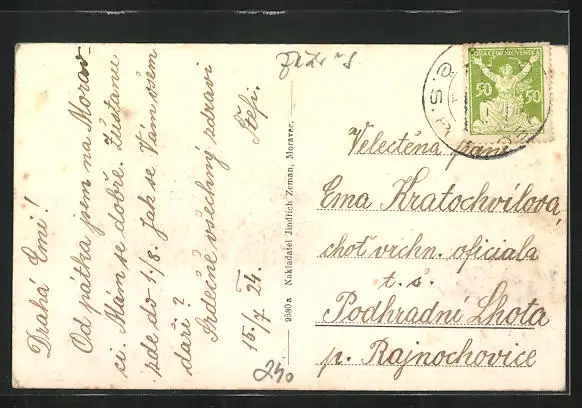 Drahá Emi!
Od pátka jsem na Morav-
ci. Mám se dobře. Zůstanu
zde do 1./8. Jak se Vám všem
daří?
Srdečně všechny zdraví
Štefi.
15./7. 24.
9580a Nakladatel Jindřich Zeman, Moravec.
POŠTA ČESKOSLOVENSKÁ
50 50
Velectěná paní
Ema Kratochvílová,
choť vrchn. oficiala
t. č.
Podhradní Lhota
p. Rajnochovice
240